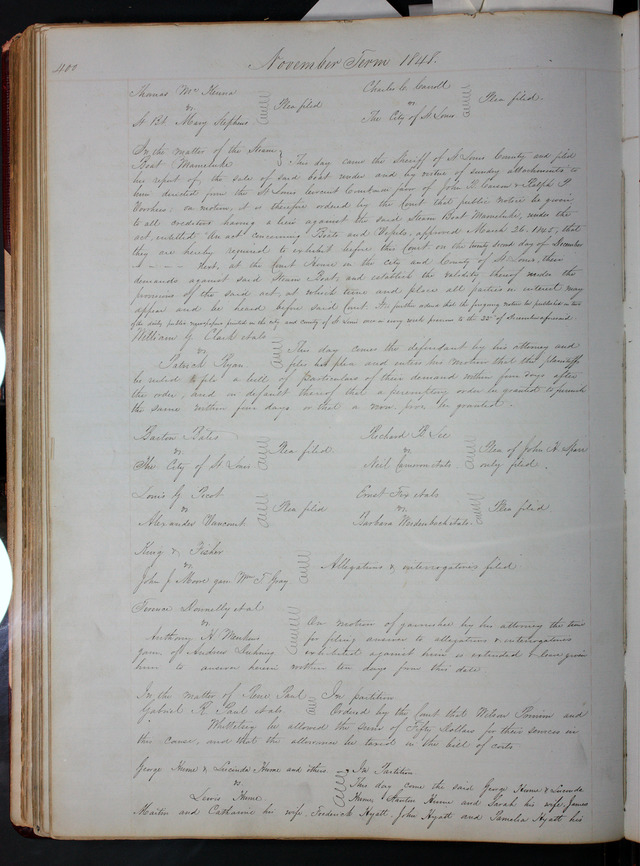 400
November Term 1848.
Thomas Mc Kenna
vs
St Bt Mary Stephens
Plea filed
Charles C. Carroll
vs
The City of St Louis
Plea filed.
In the matter of the Steam
Boat Mameluke
This day came the Sheriff of St Louis County and filed
his report of the sale of said boat under and by virtue of sundry attachments, to
him directed from the St Louis Circuit Court in favor of John R. Carson & Ralph P.
Voorhees; on motion, it is therefore ordered by the Court that public notice be given
to all creditors having a lien against the said Steam Boat Mameluke, under the
act, entitled "An act concerning Boats and Vessels, approved March 26. 1845, that
they are hereby required to exhibit before this Court on the twenty second day of December
next, at the Court House in the city and County of St Louis, their
demands against said Steam Boat, and establish the validity thereof under the
provisions of the said act, at which time and place all parties in interest may
appear and be heard before said Court. It is further ordered that the foregoing notice be published in two
of the daily public newspapers printed in the city and county of St Louis once in every week previous to the 22d of December aforesaid
William G. Clark et als
vs
Patrick Ryan
This day comes the defendant by his attorney and
files his plea and enters his motion that the plaintiffs
be ruled to file a bill of particulars of their demand within five days after
the order, and in default thereof that a peremptory order be granted to furnish
the same within five days or that a non pros. be granted.
Barton Bates
vs
The City of St Louis
Plea filed.
Richard R. Lee
vs
Neil Cameron et als
Plea of John H. Sparr
only filed.
Louis G Picot
vs
Alexander Vancourt
Plea filed
Ernst Fix et als
vs
Barbara Weidenbach et als.
Plea filed.
King & Fisher
vs
John J. Moore garn Wm T. Gray
Allegations & interrogatories filed
Terence Donnelly et al
vs
Anthony H. Menkens
garn. of Andrew
On motion of garnishee by his attorney the time
for filing answer to allegations & interrogatories
exhibited against him is extended & leave given
him to answer herein within ten days from this date.
In the matter of Rene Paul
Gabriel R. Paul et als
In partition
Ordered by the Court that Wilson Primm and
Whittelsey be allowed the sum of Fifty Dollars for their services in
this cause, and that the allowance be taxed in the bill of costs.
George Hume & Lucinda Hume and others
vs
Lewis Hume
In Partition
This day come the said George Hume & Lucinda
Hume, Stanton Hume and Sarah his wife, James
Martin and Catharine his wife, Frederick Hyatt, John Hyatt and Pamelia Hyatt his